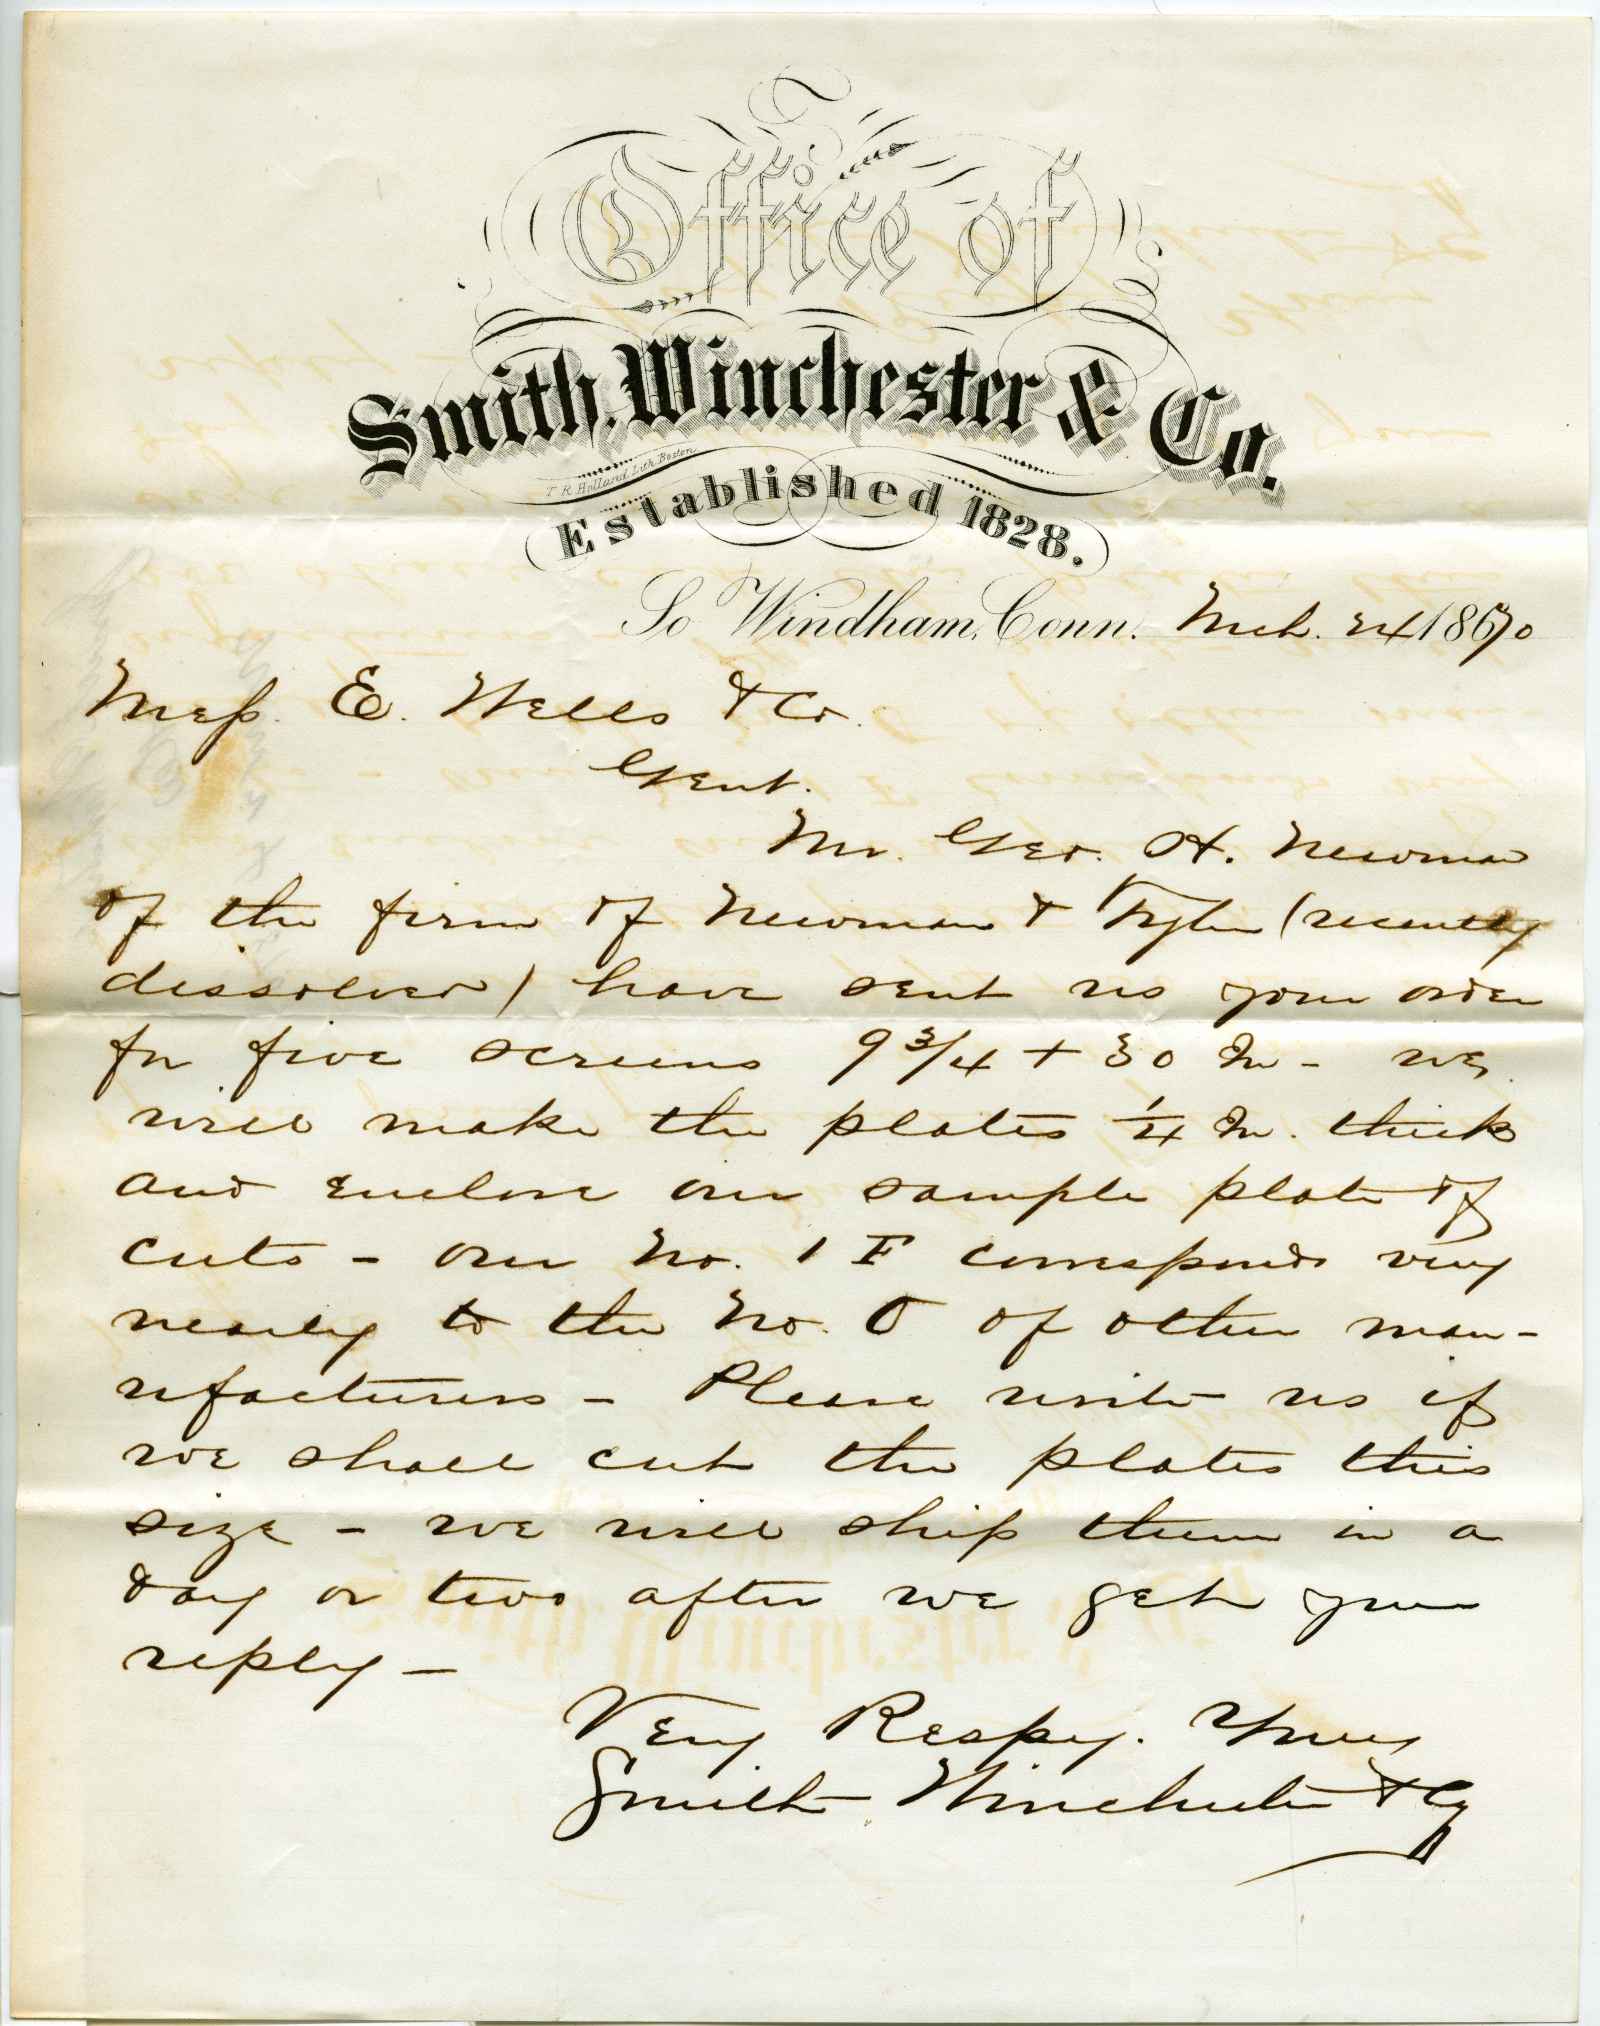 Office of
Smith, Winchester & Co.
T. R. Holland, Lith. Boston
Established 1828.
So Windham, Conn. Mch. 24 1870
Mess. E. Wells & Co.
Gent.
Mr. Geo. H. Newman
of the firm of Newman & Tyler (recently
dissolved) have sent us your order
for five screens 9 3/4 + 30 In - we
will make the plates 1/4 In. thick
and enclose our sample plate of
cuts - our No. 1 F corresponds very
nearly to the No. 0 of other man-
ufacturers - Please write us if
we shall cut the plates this
size - we will ship them in a
day or two after we get your
reply -
Very Respy. Yours
Smith Winchester & Co